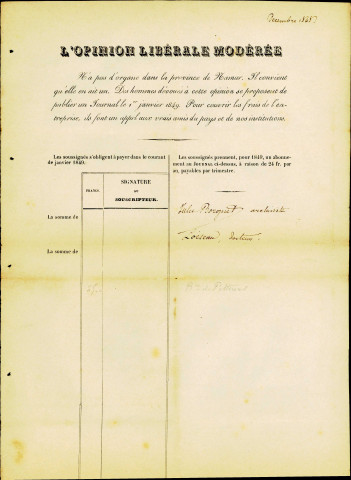 Décembre 1848
L'OPINION LIBÉRALE MODÉRÉE
N'a pas d'organe dans la province de Namur. Il convient
qu'elle en ait un. Des hommes dévoués à cette opinion se proposent de
publier un Journal le 1er janvier 1849. Pour couvrir les frais de l'en-
treprise, ils font un appel aux vrais amis du pays et de nos institutions.
Les soussignés s'obligent à payer dans le courant
de janvier 1849.
Les soussignés prennent, pour 1849, un abonne-
ment au JOURNAL ci-dessus, à raison de 24 fr. par
an, payables par trimestre.
FRANCS.
SIGNATURE
DU
SOUSCRIPTEUR.
La somme de
Jules
La somme de
docteur